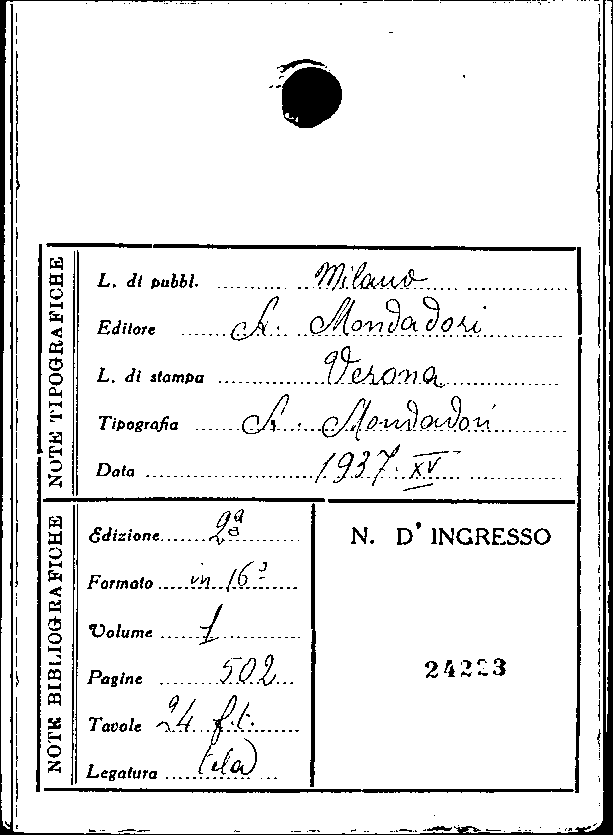 NOTE TIPOGRAFICHE
L. di pubbl. Milano
Editore A. Mondadori
L. di stampa Verona
Tipografia A. Mondadori
Data 1937. XV
NOTE BIBLIOGRAFICHE
Edizione 2ª
Formato in 16º
Volume 1
Pagine 502
Tavole 24 f.t.
Legatura tela
N. D' INGRESSO